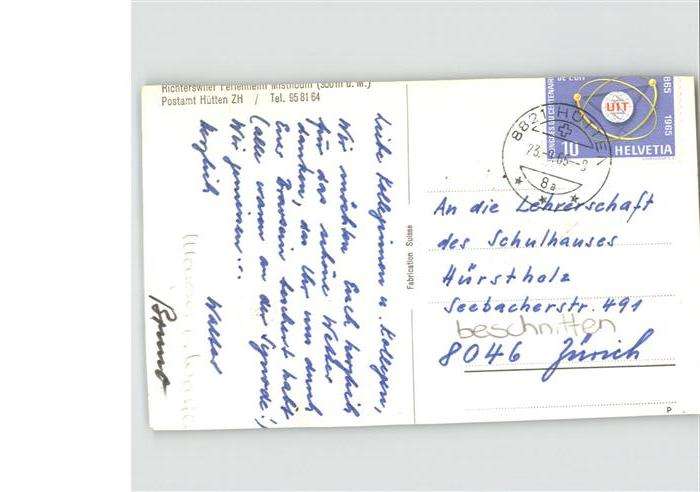 Richterswiler Ferienheim Mistlibühl (950 m ü. M.)
Postamt Hütten ZH / Tel. 95 81 64
Liebe Kolleginnen u. Kollegen,
Wir möchten Euch herzlich
für das schöne Wetter
danken, das Ihr uns durch
Euer Bravsein beschert habt
(alle waren an der Synode!)
Wir geniessen...
Herzlich
Walter
Bruno
Fabrication Suisse
DE L'UIT
1865
1965
UIT
10 HELVETIA
8821 HÜTTEN
23.-9.65-8
8a
An die Lehrerschaft
des Schulhauses
Hürstholz
Seebacherstr. 491
beschnitten
8046 Zürich
P